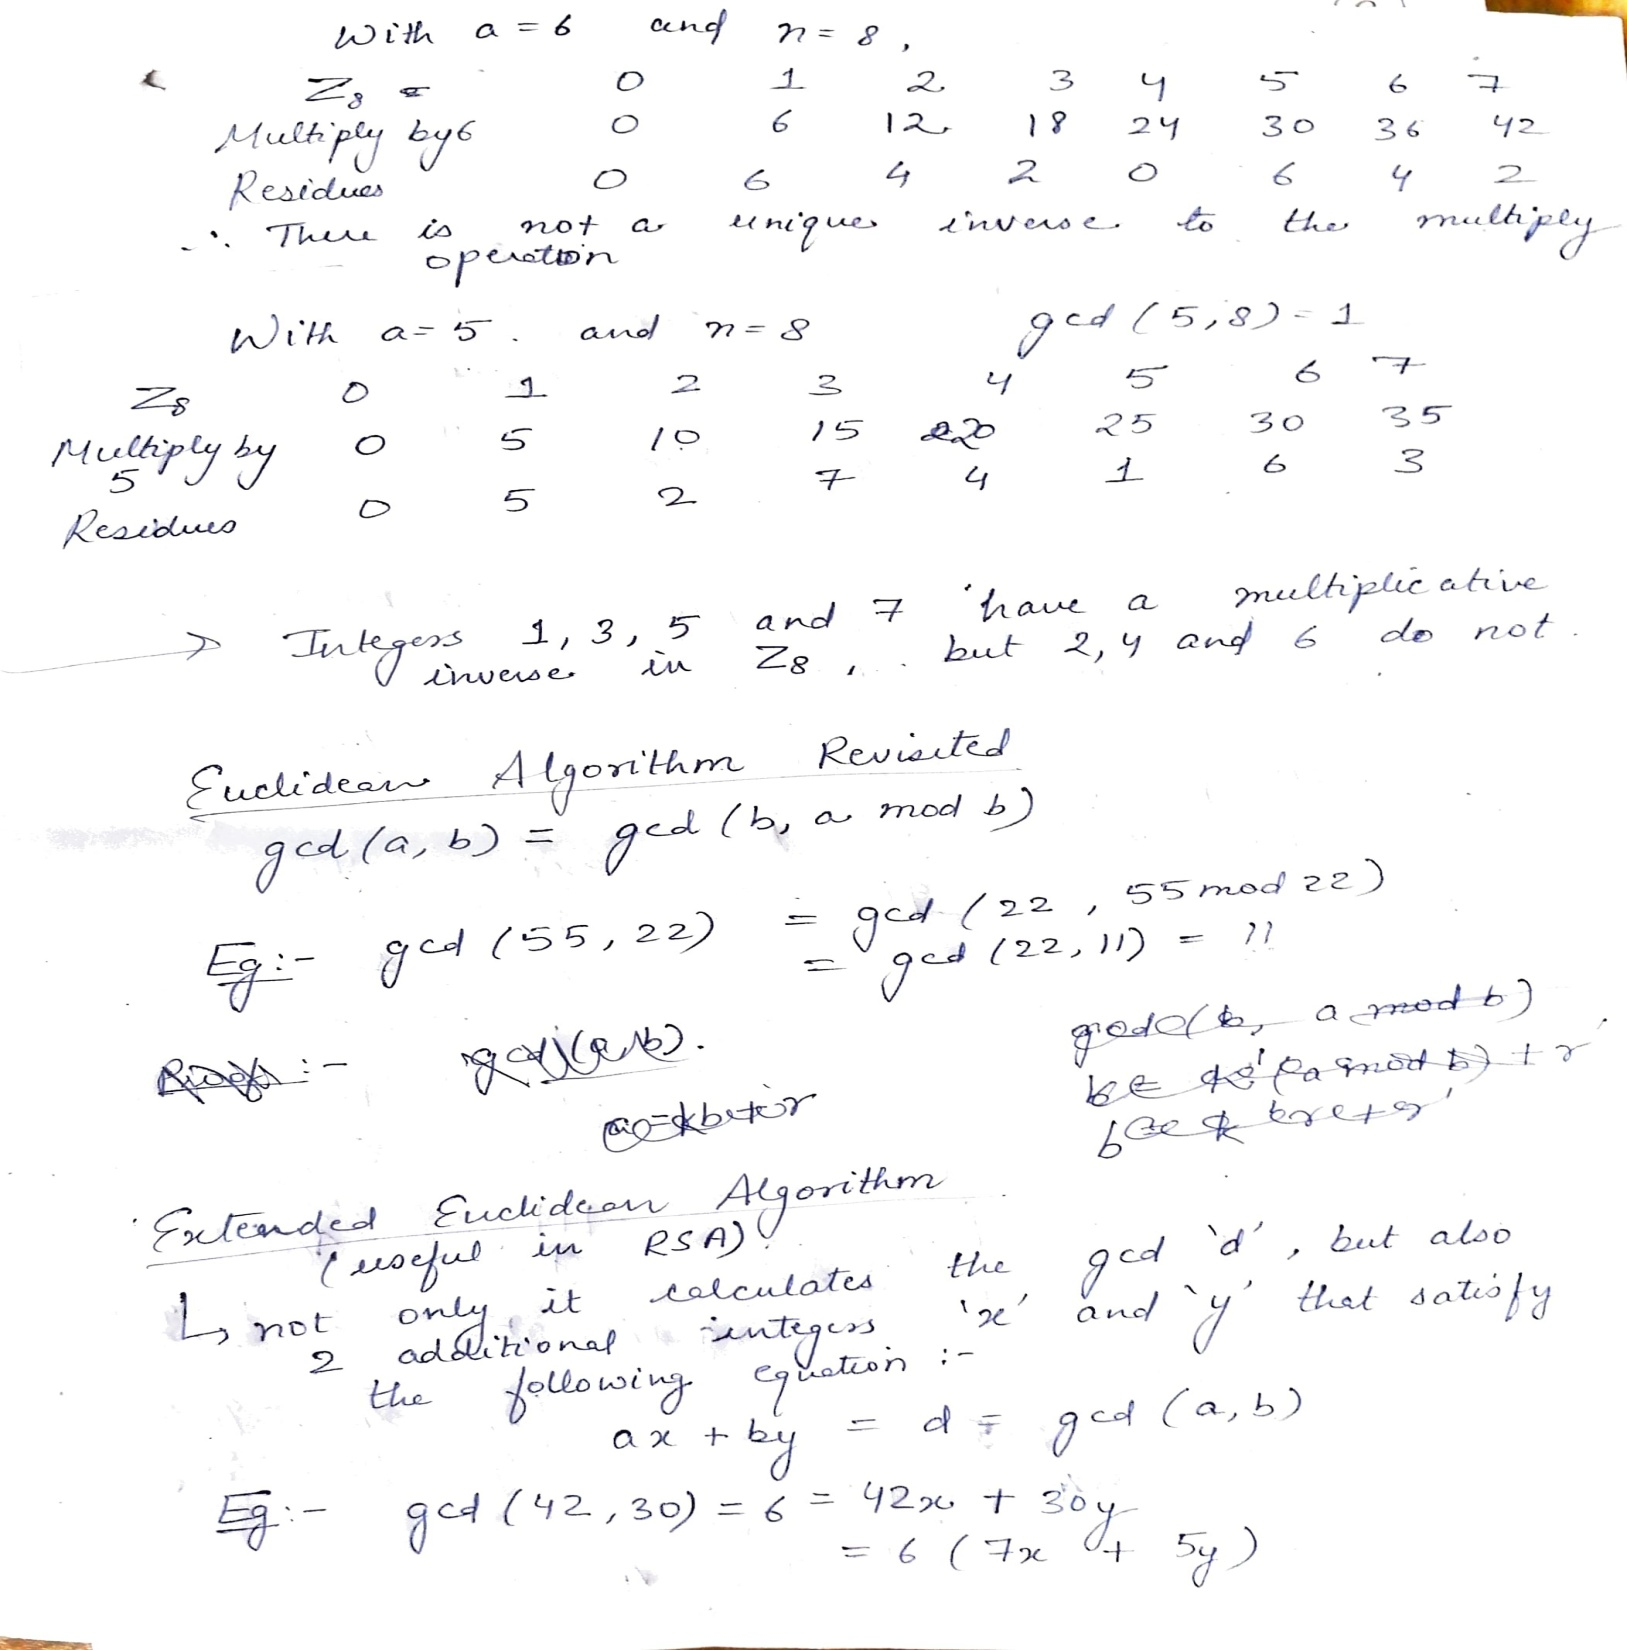 With a = 6 and n = 8,
Z8 = 0 1 2 3 4 5 6 7
Multiply by 6 0 6 12 18 24 30 36 42
Residues 0 6 4 2 0 6 4 2
∴ There is not a unique inverse to the multiply
operation
With a = 5. and n = 8 gcd (5,8) = 1
Z8 0 1 2 3 4 5 6 7
Multiply by 0 5 10 15 20 25 30 35
5
Residues 0 5 2 7 4 1 6 3
→ Integers 1, 3, 5 and 7 have a multiplicative
inverse in Z8, but 2, 4 and 6 do not.
Euclidean Algorithm Revisited
gcd (a, b) = gcd (b, a mod b)
Eg:- gcd (55, 22) = gcd (22, 55 mod 22)
= gcd (22, 11) = 11
Extended Euclidean Algorithm
(useful in RSA)
↳ not only it calculates the gcd 'd', but also
2 additional integers 'x' and 'y' that satisfy
the following equation :-
ax + by = d = gcd (a, b)
Eg:- gcd (42, 30) = 6 = 42x + 30y
= 6 (7x + 5y)